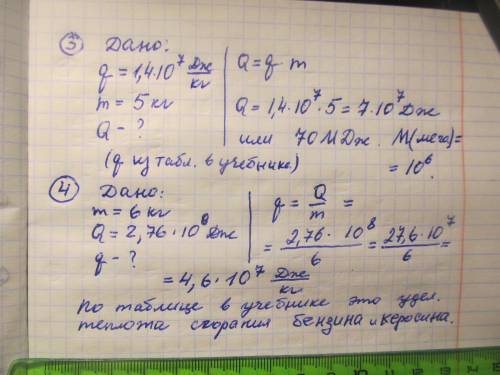 ③ Дано:
q = 1,4·10⁷ Дж/кг
m = 5 кг
Q - ?
(q из табл. в учебнике.)
Q = q·m
Q = 1,4·10⁷·5 = 7·10⁷ Дж
или 70 МДж. М(мега) =
= 10⁶.
④ Дано:
m = 6 кг
Q = 2,76·10⁸ Дж
q - ?
q = Q/m =
= 2,76·10⁸/6 = 27,6·10⁷/6 =
= 4,6·10⁷ Дж/кг
По таблице в учебнике это удел.
теплота сгорания бензина и керосина.